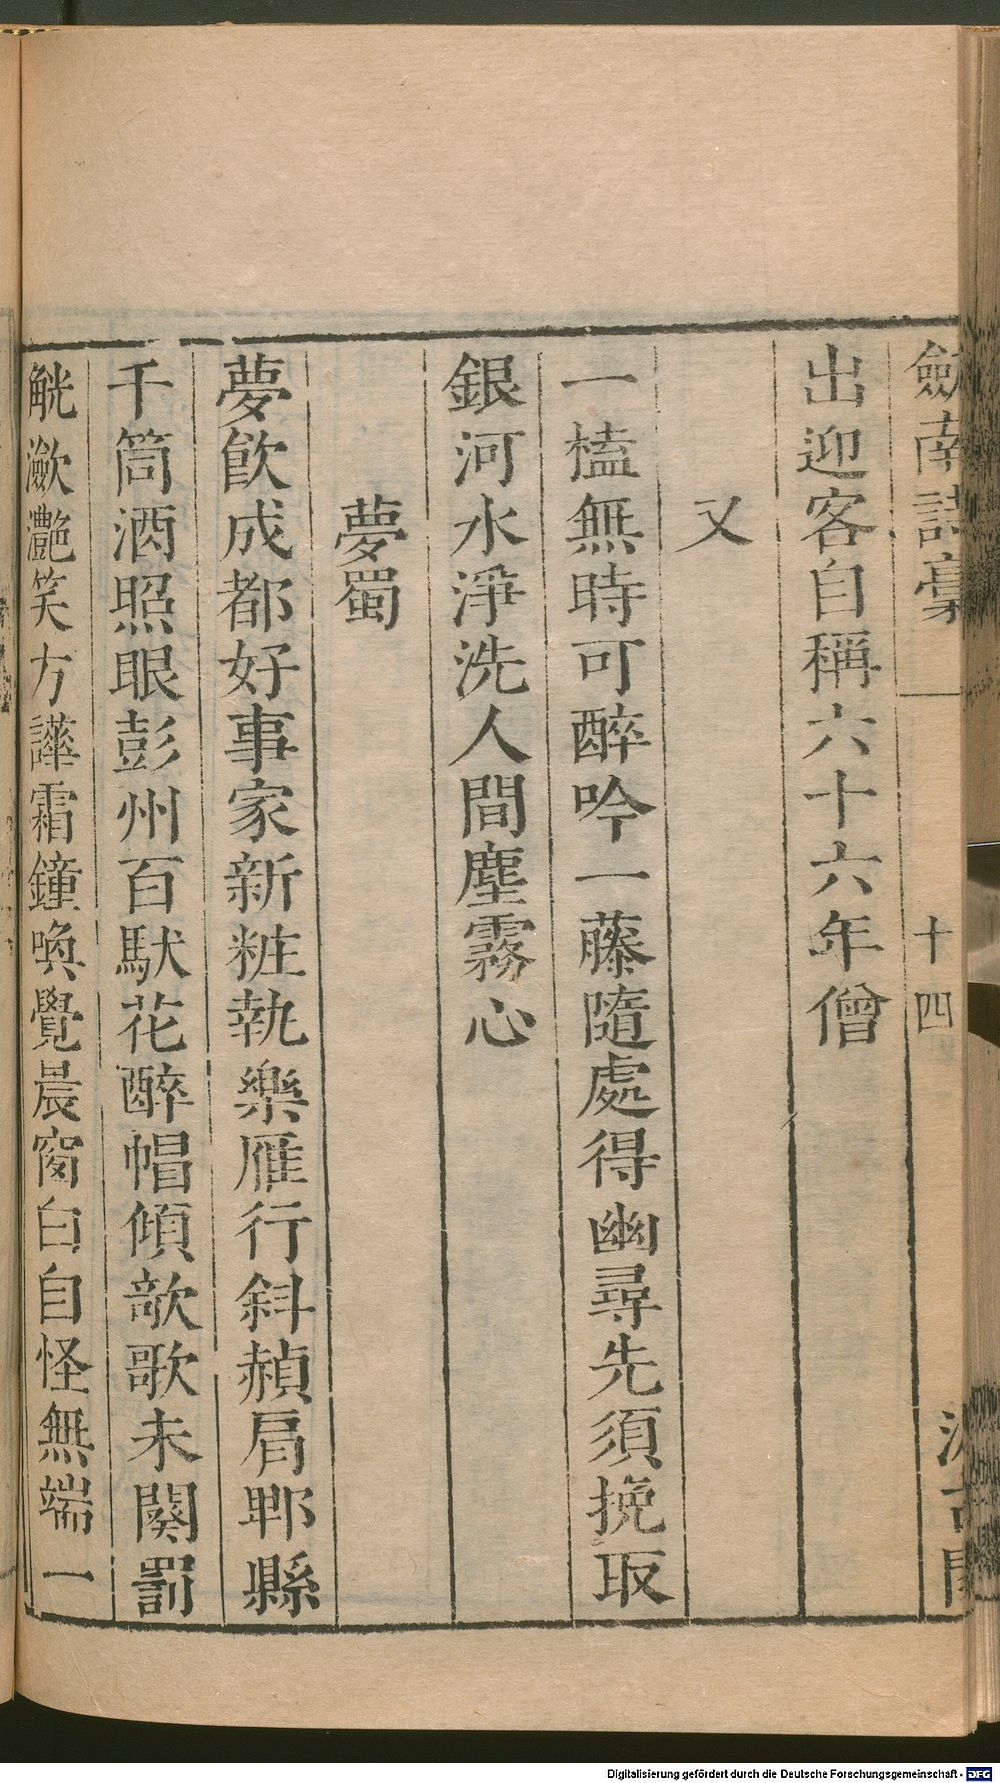 劎南詩稾 十四 汲古閣
出迎客自稱六十六年僧
又
一榼無時可醉吟一藤隨處得幽尋先須挽取
銀河水淨洗人間塵霧心
夢蜀
夢飮成都好事家新粧執樂雁行斜赬肩郫縣
千筒酒照眼彭州百馱花醉帽傾欹歌未闋罰
觥瀲灩笑方譁霜鐘喚覺晨窗白自怪無端一
Digitalisierung gefördert durch die Deutsche Forschungsgemeinschaft - DFG